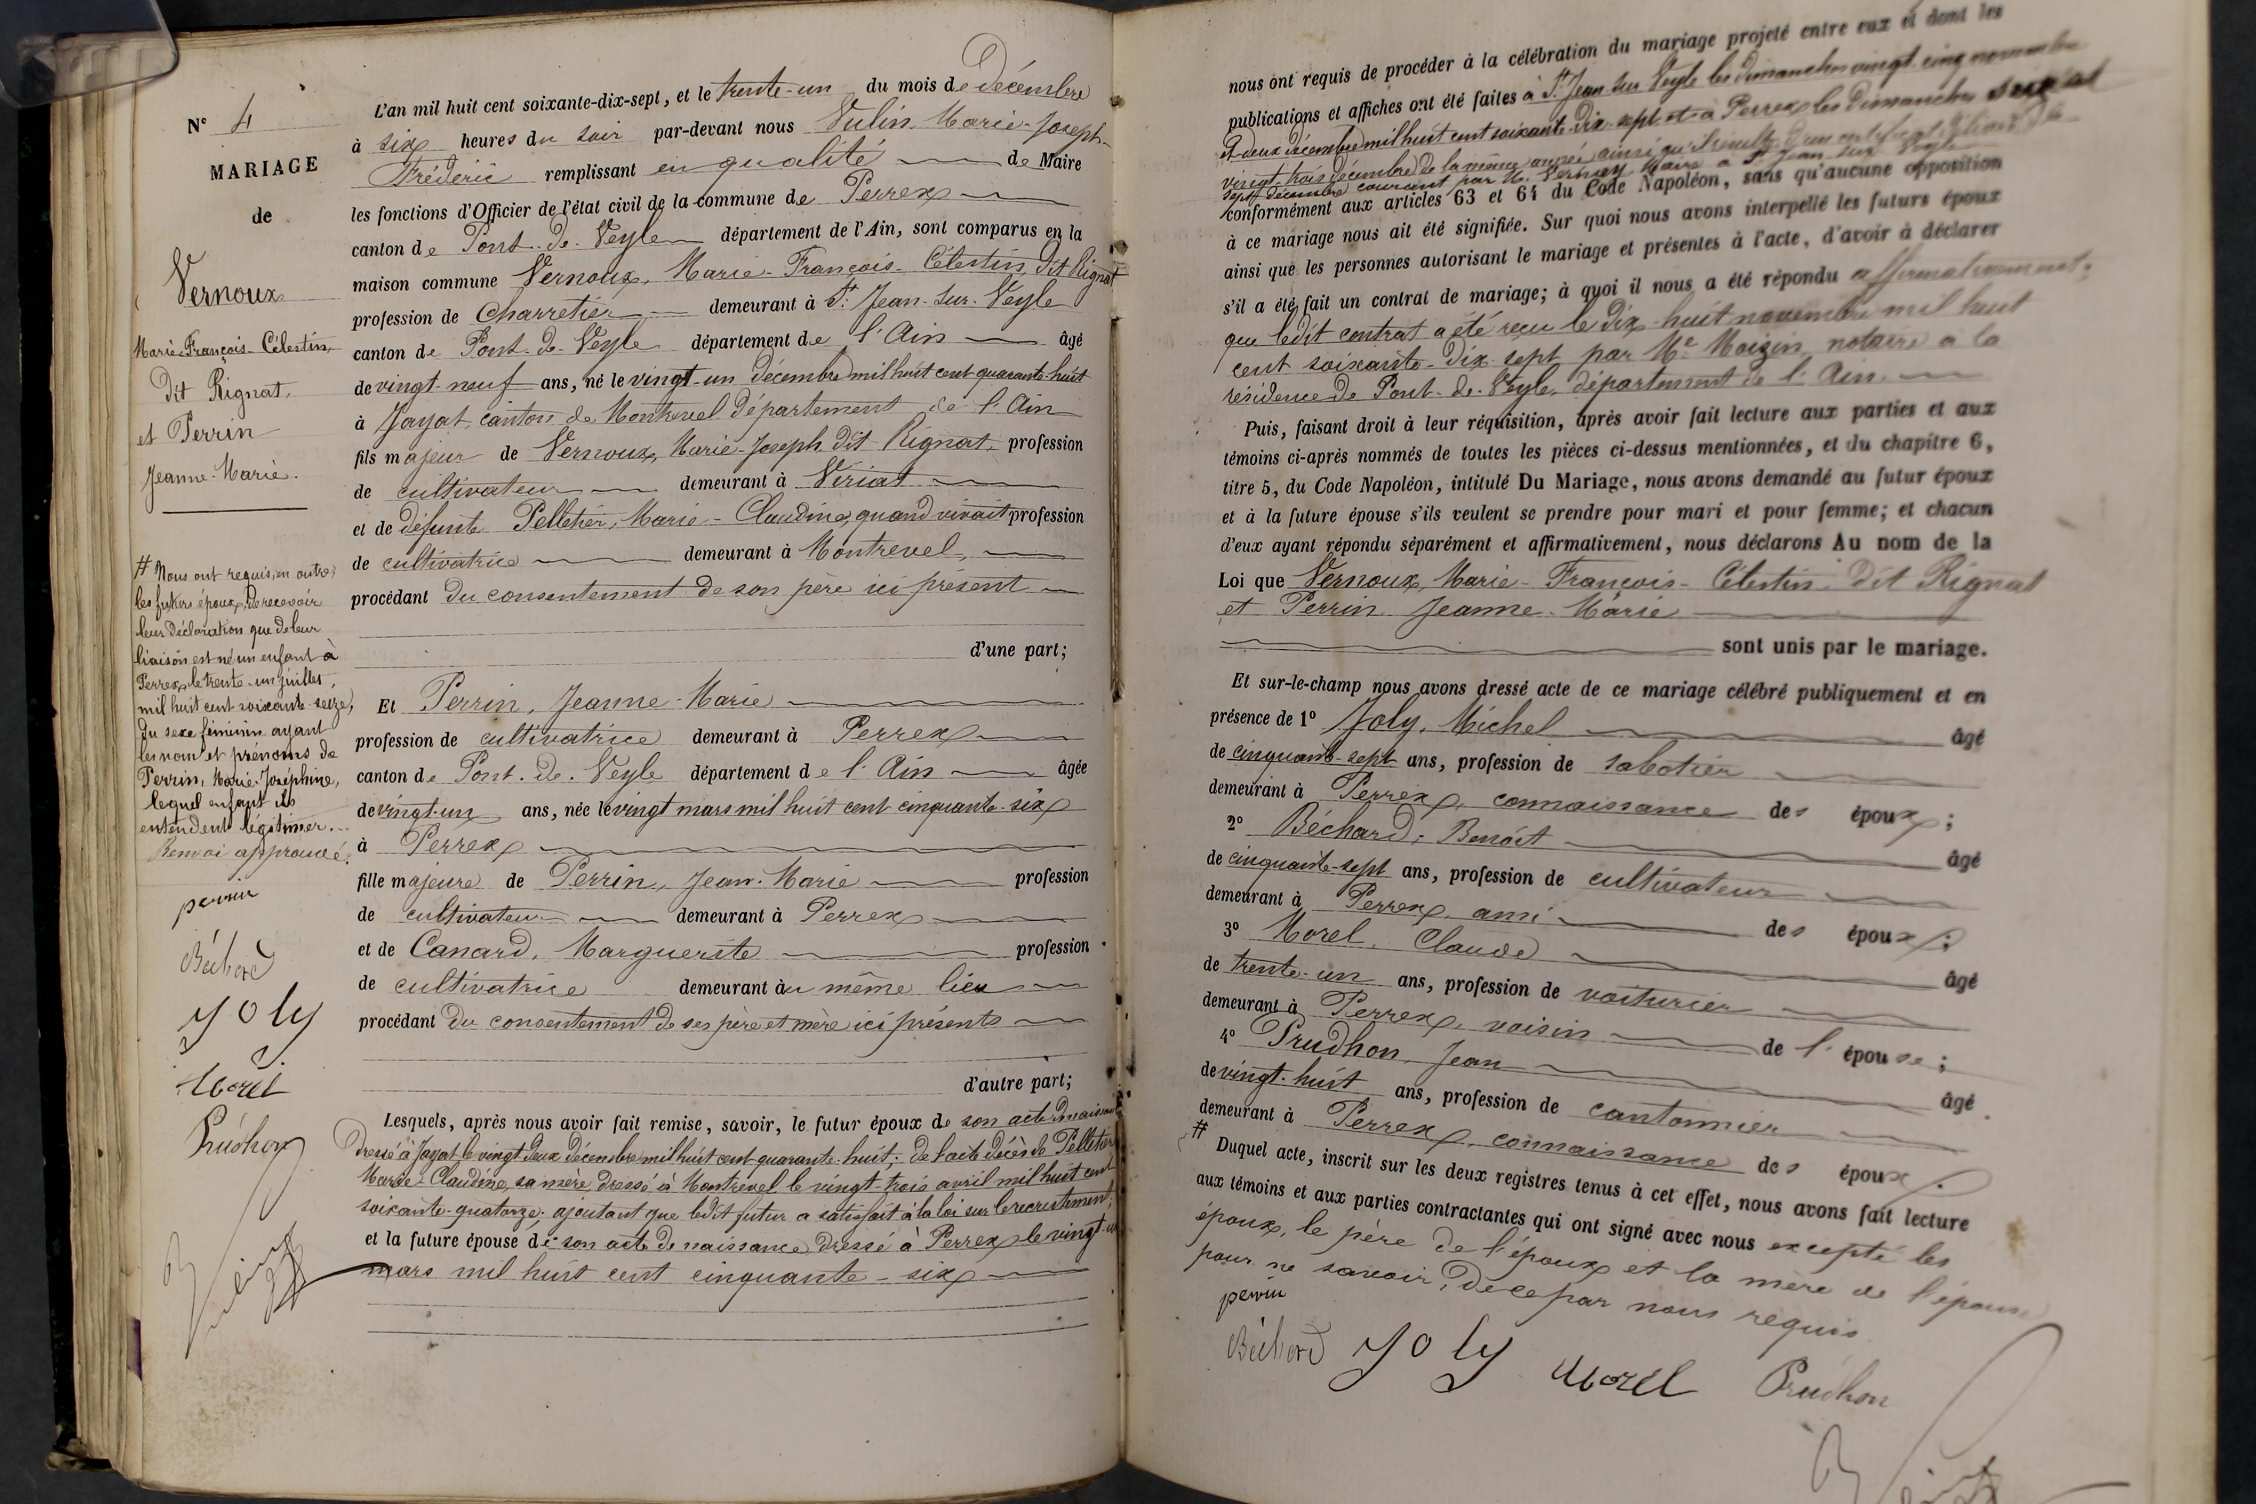 N° 4
MARIAGE
de
Vernoux
Marie-François-Célestin,
dit Rignat,
et Perrin
Jeanne-Marie.
# Nous ont requis, en outre,
les futurs époux, de recevoir
leur déclaration que de leur
liaison est né un enfant à
Perrex, le trente-un juillet,
mil huit cent soixante-seize,
du sexe féminin ayant
les nom et prénoms de
Perrin, Marie-Joséphine,
lequel enfant ils
entendent légitimer.
Renvoi approuvé.
perrin
Béchard
Joly
Morel
Prudhon
L'an mil huit cent soixante-dix-sept, et le trente-un du mois de décembre
à six heures du soir par-devant nous Vulin, Marie-Joseph-
Frédéric remplissant en qualité de Maire
les fonctions d'Officier de l'état civil de la commune de Perrex
canton de Pont-de-Veyle département de l'Ain, sont comparus en la
maison commune Vernoux, Marie-François-Célestin, dit Rignat
profession de charretier demeurant à St Jean-sur-Veyle
canton de Pont-de-Veyle département de l'Ain âgé
de vingt-neuf ans, né le vingt-un décembre mil huit cent quarante-huit
à Jayat, canton de Montrevel département de l'Ain
fils majeur de Vernoux, Marie-Joseph dit Rignat, profession
de cultivateur demeurant à Viriat
et de défunte Pelletier, Marie-Claudine, quand vivait profession
de cultivatrice demeurant à Montrevel,
procédant du consentement de son père ici présent
d'une part;
Et Perrin, Jeanne-Marie
profession de cultivatrice demeurant à Perrex
canton de Pont-de-Veyle département de l'Ain âgée
de vingt-un ans, née le vingt mars mil huit cent cinquante-six
à Perrex
fille majeure de Perrin, Jean-Marie profession
de cultivateur demeurant à Perrex
et de Canard, Marguerite profession
de cultivatrice demeurant au même lieu
procédant du consentement de ses père et mère ici présents
d'autre part;
Lesquels, après nous avoir fait remise, savoir, le futur époux de son acte de naissance
dressé à Jayat le vingt-deux décembre mil huit cent quarante-huit; de l'acte décès de Pelletier
Marie-Claudine, sa mère dressé à Montrevel le vingt-trois avril mil huit cent
soixante-quatorze; ajoutant que ledit futur a satisfait à la loi sur le recrutement,
et la future épouse de son acte de naissance dressé à Perrex le vingt-un
mars mil huit cent cinquante-six
nous ont requis de procéder à la célébration du mariage projeté entre eux et dont les
publications et affiches ont été faites à St Jean sur Veyle les dimanches vingt-cinq novembre
et deux décembre mil huit cent soixante-dix-sept et à Perrex les dimanches
vingt-trois décembre de la même année, ainsi qu'il résulte d'un certificat délivré le
sept décembre courant par M. Vernay Maire à St Jean sur Veyle
conformément aux articles 63 et 64 du Code Napoléon, sans qu'aucune opposition
à ce mariage nous ait été signifiée. Sur quoi nous avons interpellé les futurs époux
ainsi que les personnes autorisant le mariage et présentes à l'acte, d'avoir à déclarer
s'il a été fait un contrat de mariage; à quoi il nous a été répondu affirmativement,
que ledit contrat a été reçu le dix-huit novembre mil huit
cent soixante-dix-sept par Me Moizin, notaire à la
résidence de Pont-de-Veyle, département de l'Ain.
Puis, faisant droit à leur réquisition, après avoir fait lecture aux parties et aux
témoins ci-après nommés de toutes les pièces ci-dessus mentionnées, et du chapitre 6,
titre 5, du Code Napoléon, intitulé Du Mariage, nous avons demandé au futur époux
et à la future épouse s'ils veulent se prendre pour mari et pour femme; et chacun
d'eux ayant répondu séparément et affirmativement, nous déclarons Au nom de la
Loi que Vernoux, Marie-François-Célestin dit Rignat
et Perrin Jeanne-Marie
sont unis par le mariage.
Et sur-le-champ nous avons dressé acte de ce mariage célébré publiquement et en
présence de 1° Joly, Michel âgé
de cinquante-sept ans, profession de sabotier
demeurant à Perrex, connaissance des époux;
2° Béchard, Benoît âgé
de cinquante-sept ans, profession de cultivateur
demeurant à Perrex, ami des époux;
3° Morel, Claude âgé
de trente-un ans, profession de voiturier
demeurant à Perrex, voisin de l'épouse;
4° Prudhon, Jean âgé
de vingt-huit ans, profession de cantonnier
demeurant à Perrex, connaissance des époux.
# Duquel acte, inscrit sur les deux registres tenus à cet effet, nous avons fait lecture
aux témoins et aux parties contractantes qui ont signé avec nous excepté les
époux, le père de l'époux et la mère de l'épouse
pour ne savoir, de ce par nous requis.
perrin
Béchard Joly Morel Prudhon